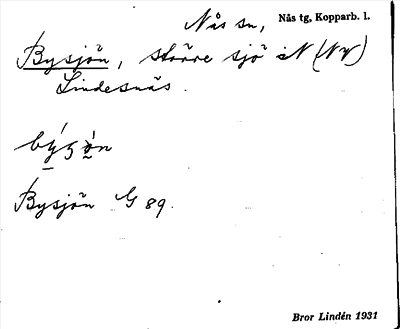 Nås sn, Nås tg, Kopparb. l.
Bysjön, större sjö i N (NV)
Lindesnäs.
Bysjön G 89.
Bror Lindén 1931